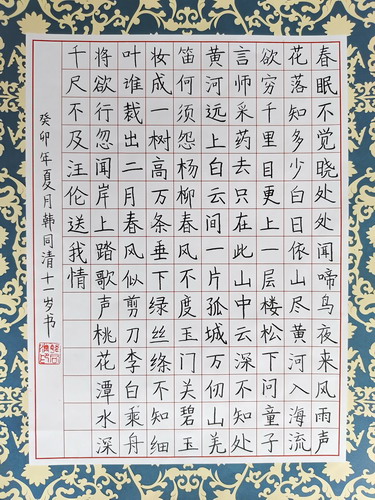 春眠不觉晓处处闻啼鸟夜来风雨声
花落知多少白日依山尽黄河入海流
欲穷千里目更上一层楼松下问童子
言师采药去只在此山中云深不知处
黄河远上白云间一片孤城万仞山羌
笛何须怨杨柳春风不度玉门关碧玉
妆成一树高万条垂下绿丝绦不知细
叶谁裁出二月春风似剪刀李白乘舟
将欲行忽闻岸上踏歌声桃花潭水深
千尺不及汪伦送我情
癸卯年夏月韩同清十一岁书